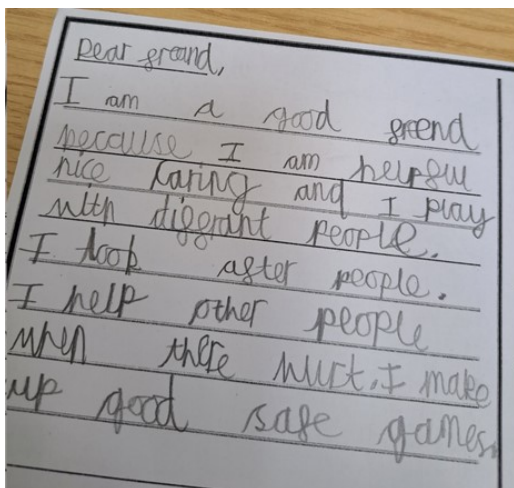 Dear freand,
I am a good freend
because I am helpful
nice caring and I play
with diffrant people.
I look after people.
I help other people
when there hurt. I make
up good safe games.